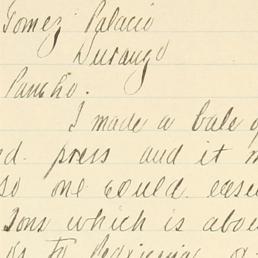 Gomez Palacio
Durango
Pancho.
I made a bale o
ed. press and it m
so one could ease
Tons which is abou
as to